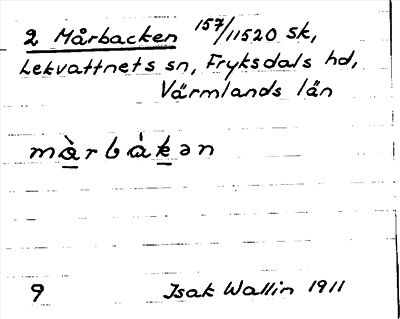 2 Mårbacken 157/11520 sk,
Lekvattnets sn, Fryksdals hd,
Värmlands län
mà̱rbàḵən
9 Isak Wallin 1911